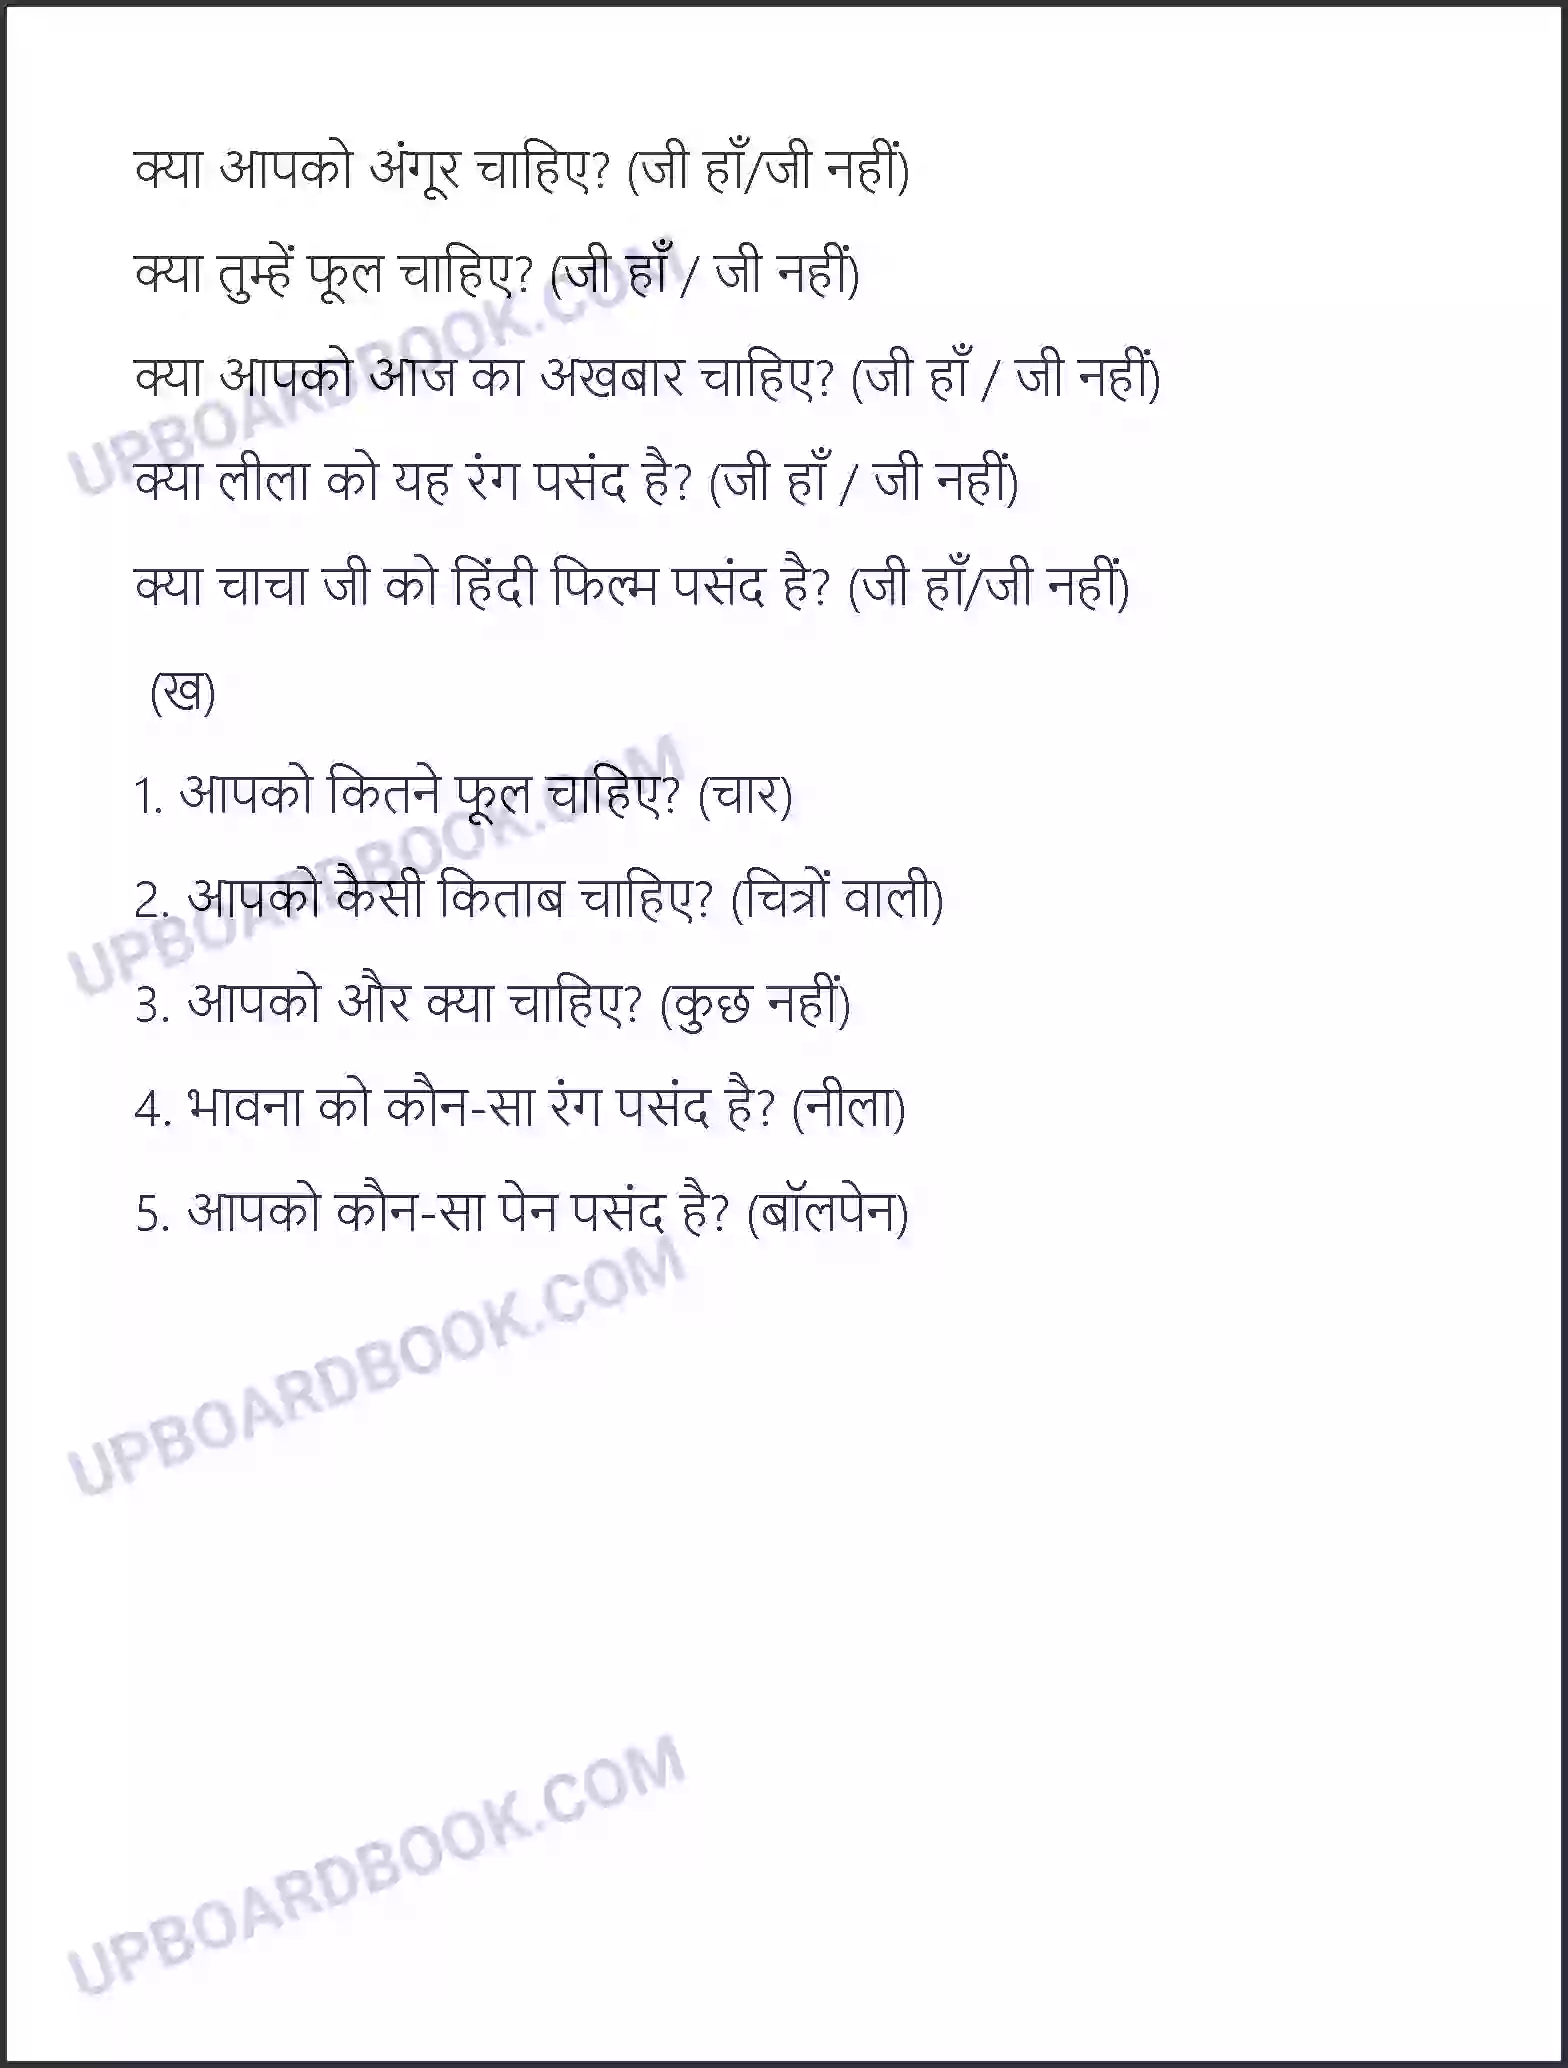 क्या आपको अंगूर चाहिए? (जी हाँ/जी नहीं)
क्या तुम्हें फूल चाहिए? (जी हाँ / जी नहीं)
क्या आपको आज का अखबार चाहिए? (जी हाँ / जी नहीं)
क्या लीला को यह रंग पसंद है? (जी हाँ / जी नहीं)
क्या चाचा जी को हिंदी फिल्म पसंद है? (जी हाँ/जी नहीं)
(ख)
1. आपको कितने फूल चाहिए? (चार)
2. आपको कैसी किताब चाहिए? (चित्रों वाली)
3. आपको और क्या चाहिए? (कुछ नहीं)
4. भावना को कौन-सा रंग पसंद है? (नीला)
5. आपको कौन-सा पेन पसंद है? (बॉलपेन)
UPBOARDBOOK.COM
UPBOARDBOOK.COM
UPBOARDBOOK.COM
UPBOARDBOOK.COM